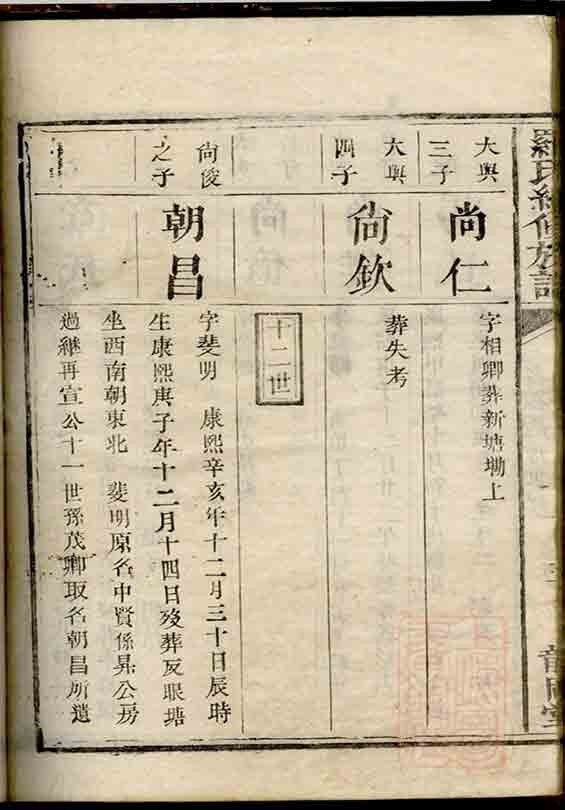 羅氏續修族譜
大興
三子
尚仁
字相卿葬新塘墈上
大興
四子
尚欽
葬失考
十二世
尚俊
之子
朝昌
字斐明 康熙辛亥年十二月三十日辰時
生康熙庚子年十二月十四日歿葬反眼塘
坐西南朝東北 斐明原名中賢係昇公房
過繼再宣公十一世孫茂卿取名朝昌所遺